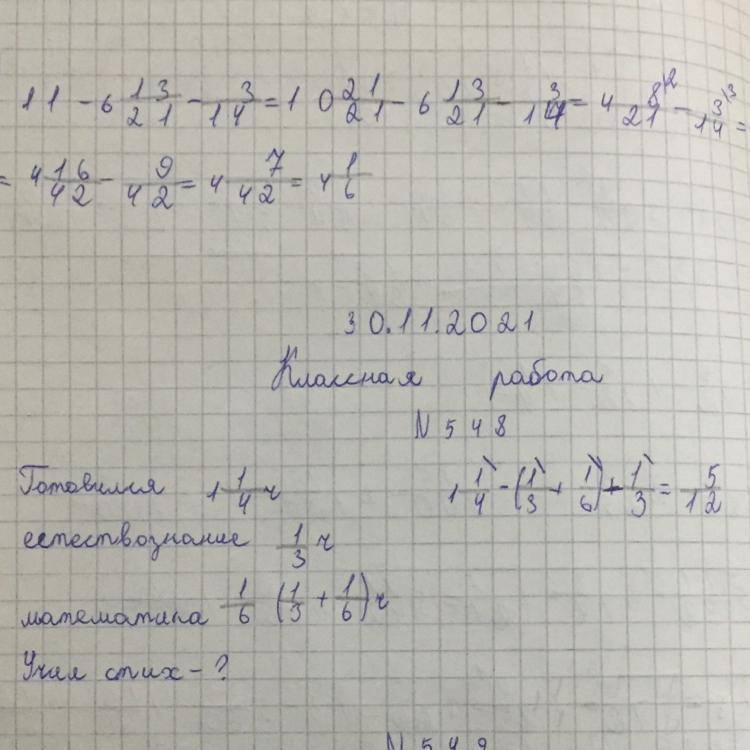 11 - 6 13/21 - 3/14 = 10 21/21 - 6 13/21 - 3/14 = 4 8/21 \2 - 3/14 \3 =
= 4 16/42 - 9/42 = 4 7/42 = 4 1/6
30.11.2021
Классная работа
N 548
Готовился 1 1/4 ч
1 1/4 - (1/3 + 1/6) + 1/3 = 5/12
естествознание 1/3 ч
математика 1/6 (1/3 + 1/6) ч
Учил стих - ?
N 549